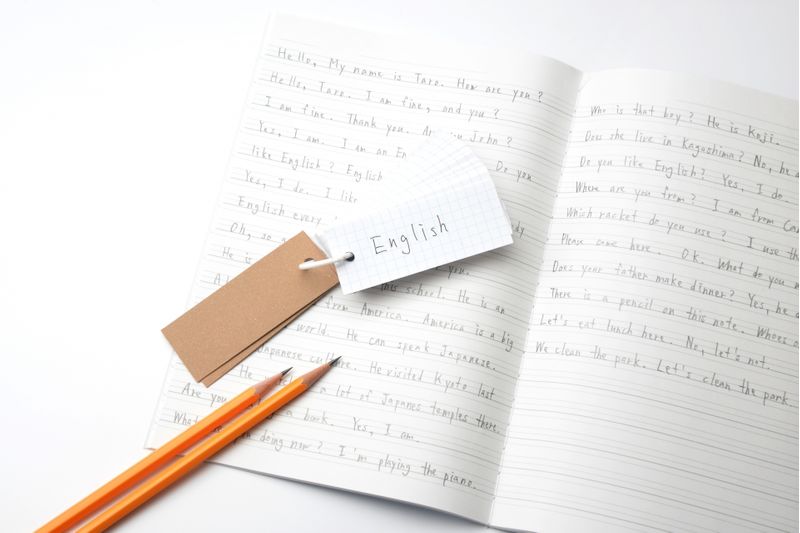 Hello, My name is Taro. How are you?
Hello, Taro. I am fine, and you?
I am fine. Thank you. Are you John?
Yes, I am. I am an En Do you
like English? English
Yes, I do. I like
English every
Oh, so
He is you.
this school. He is an
from America. America is a big
world. He can speak Japanese.
Japanese culture. He visited Kyoto last
He a lot of Japanes temples there.
Are you a book. Yes, I am.
What doing now? I'm playing the piano.
English
Who is that boy? He is Koji.
Does she live in Kagoshima? No, he
Do you like English? Yes, I do.
Where are you from? I am from Can
Which racket do you use? I use th
Please come here. OK. What do you
Does your father make dinner? Yes, he
There is a pencil on this note. Whoes
Let's eat lunch here. No, let's not.
We clean the park. Let's clean the park.